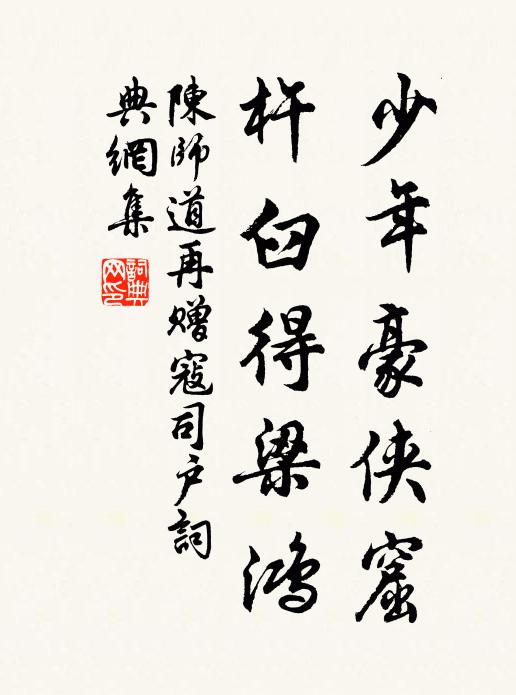 少年豪俠窟
杵臼得梁鴻
陳師道再贈寇司户詞
典網集
詞典
网印